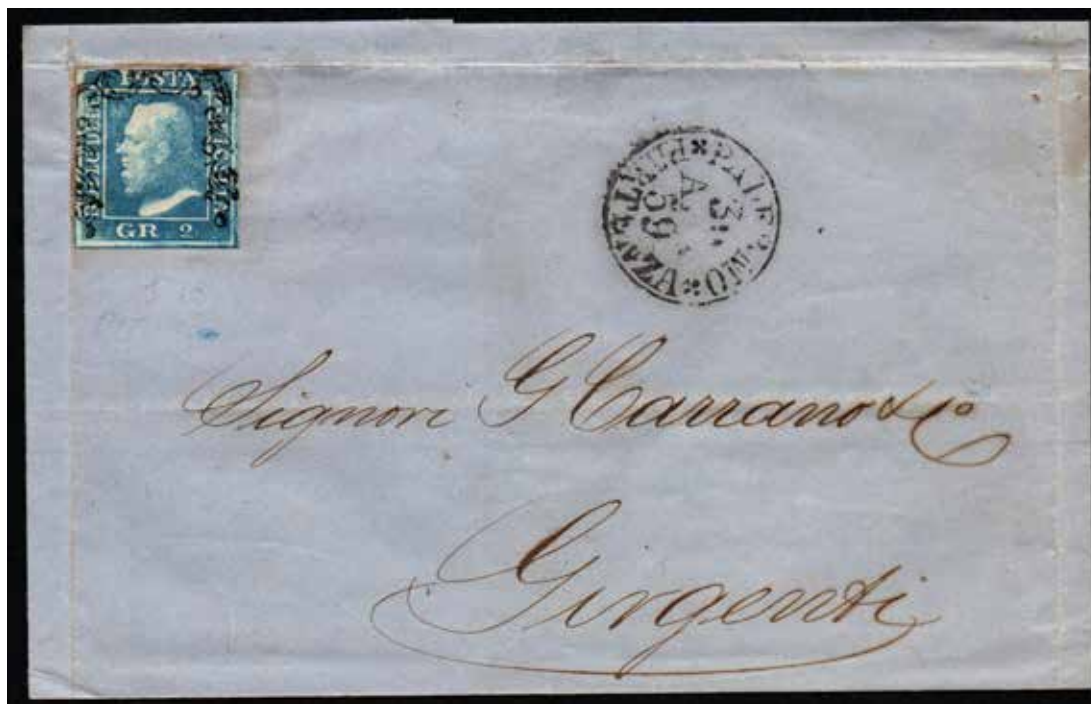 POSTA
GR 2
PALERMO
PARTENZA
3
A
59
Signori G Carrano & Co
Girgenti